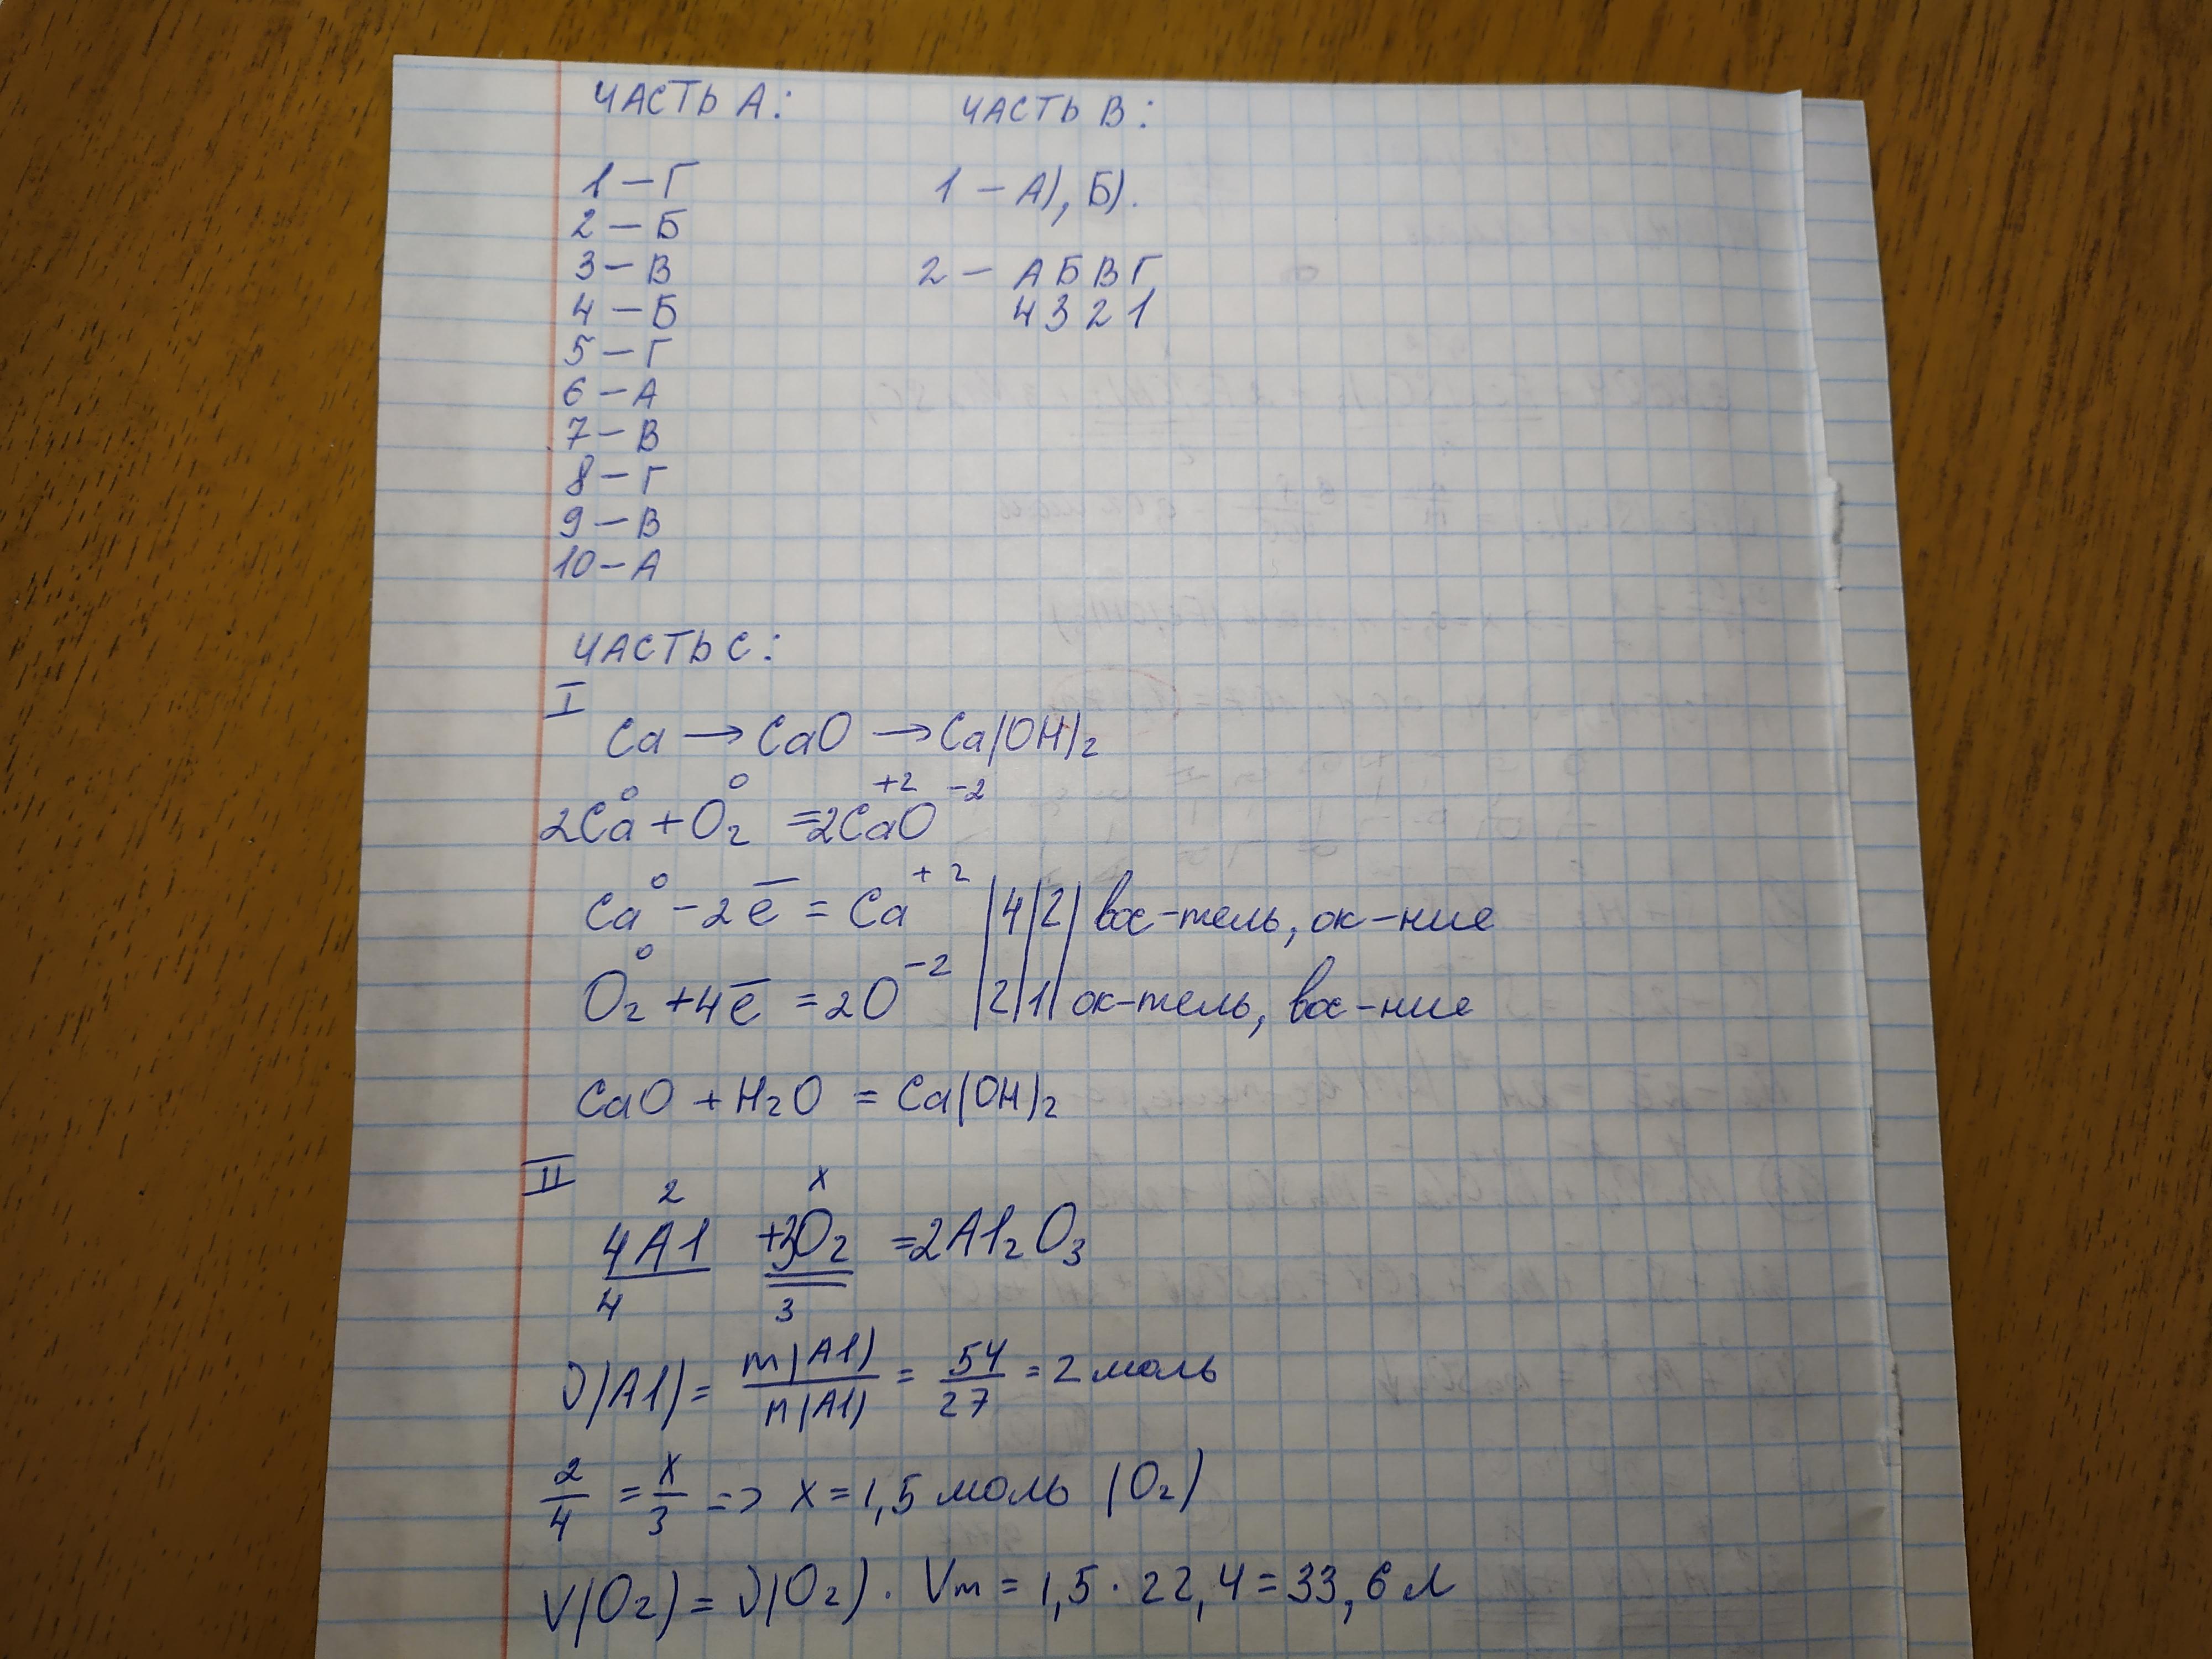 ЧАСТЬ А:
1 – Г
2 – Б
3 – В
4 – Б
5 – Г
6 – А
7 – В
8 – Г
9 – В
10 – А
ЧАСТЬ В:
1 – А), Б).
2 – А Б В Г
4 3 2 1
ЧАСТЬ С:
I
Ca → CaO → Ca(OH)₂
2Ca⁰ + O₂⁰ = 2Ca⁺²O⁻²
Ca⁰ - 2e̅ = Ca⁺² |4|2| вос-тель, ок-ние
O₂⁰ + 4e̅ = 2O⁻² |2|1| ок-тель, вос-ние
CaO + H₂O = Ca(OH)₂
II
2 x
4Al + 3O₂ = 2Al₂O₃
4 3
ν(Al) = m(Al)/M(Al) = 54/27 = 2 моль
2/4 = x/3 => x = 1,5 моль (O₂)
V(O₂) = ν(O₂) · Vm = 1,5 · 22,4 = 33,6 л